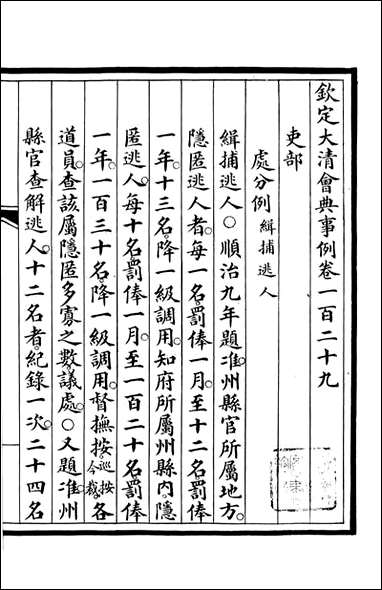 欽定大清會典事例卷一百二十九
吏部
處分例 緝捕逃人
緝捕逃人○順治九年題准州縣官所屬地方
隱匿逃人者。每一名。罰俸一月。至十二名罰俸
一年。十三名。降一級調用。知府所屬州縣內。隱
匿逃人。每十名罰俸一月。至一百二十名罰俸
一年。一百三十名。降一級調用。督撫按巡按今裁。各
道員。查該屬隱匿多寡之數。議處。○又題准。州
縣官查解逃人。十二名者。紀錄一次。二十四名